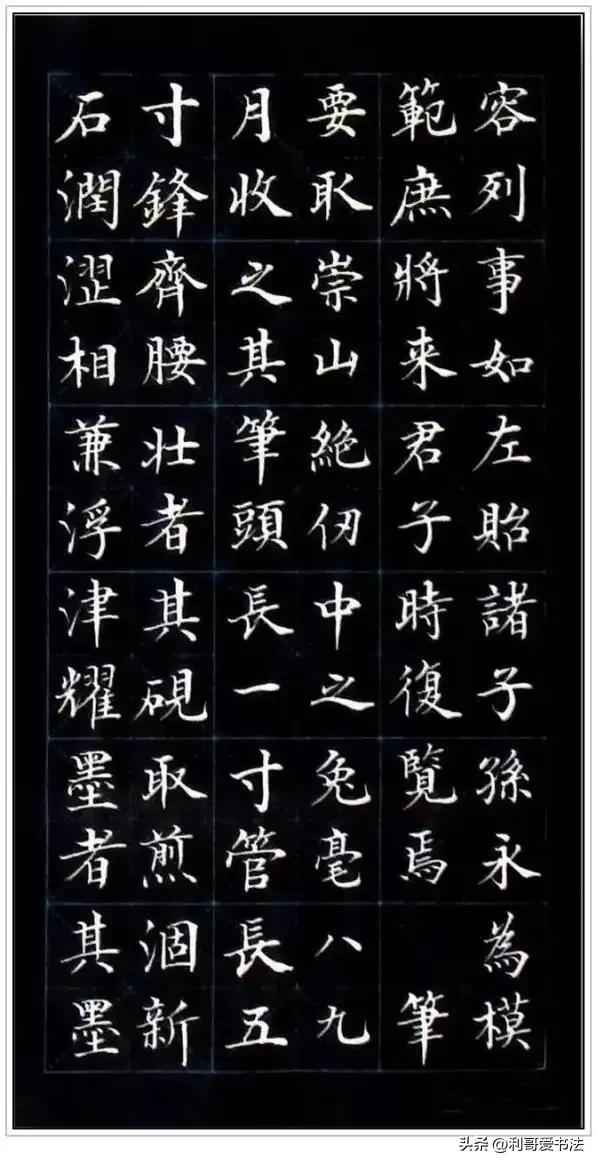 容列事如左貽諸子孫永為模
範庶將来君子時復覽焉 筆
要取崇山絶仞中之兔毫八九
月收之其筆頭長一寸管長五
寸鋒齊腰壮者其硯取煎涸新
石潤澀相兼浮津耀墨者其墨
头条 @利哥爱书法